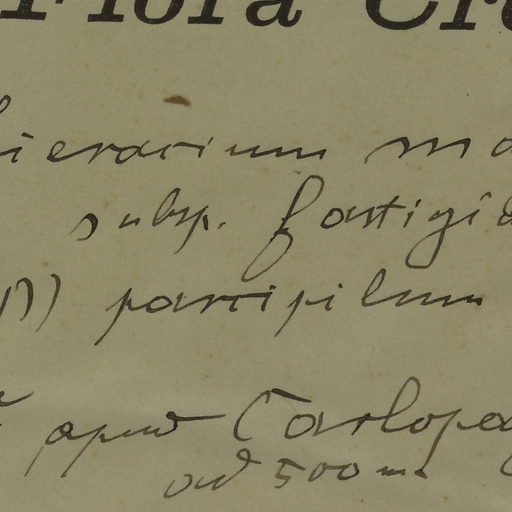 Flora Cr
Hieracium ma
subsp. fastigia
β) parcipilum
apud Carlopag
ad 500 m.